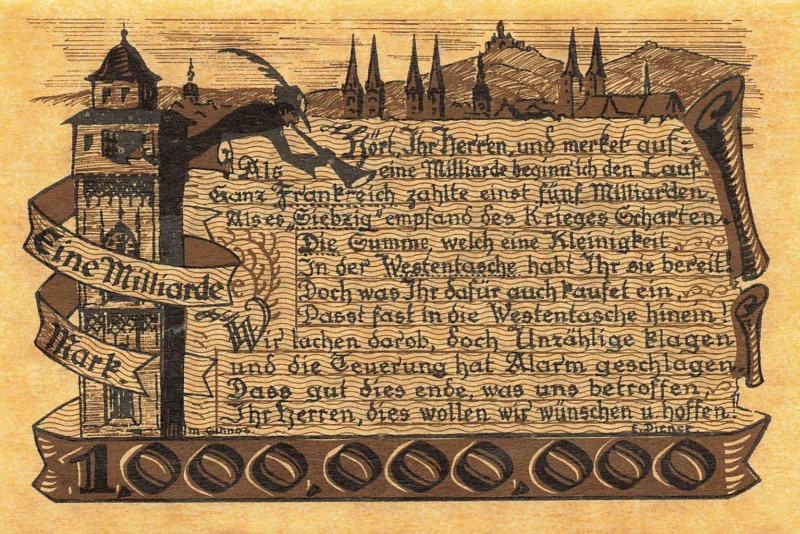 Hört, Ihr Herren, und merket auf:
Als eine Milliarde beginn' ich den Lauf.
Ganz Frankreich zahlte einst fünf Milliarden,
Als es „Siebzig“ empfand des Krieges Scharten.
Die Summe, welch eine Kleinigkeit,
In der Westentasche habt Ihr sie bereit!
Doch was Ihr dafür auch kaufet ein,
Passt fast in die Westentasche hinein!
Wir lachen darob, doch Unzählige klagen
und die Teuerung hat Alarm geschlagen.
Dass gut dies ende, was uns betroffen,
Ihr Herren, dies wollen wir wünschen u hoffen!
Eine Milliarde
Mark
1,000,000,000